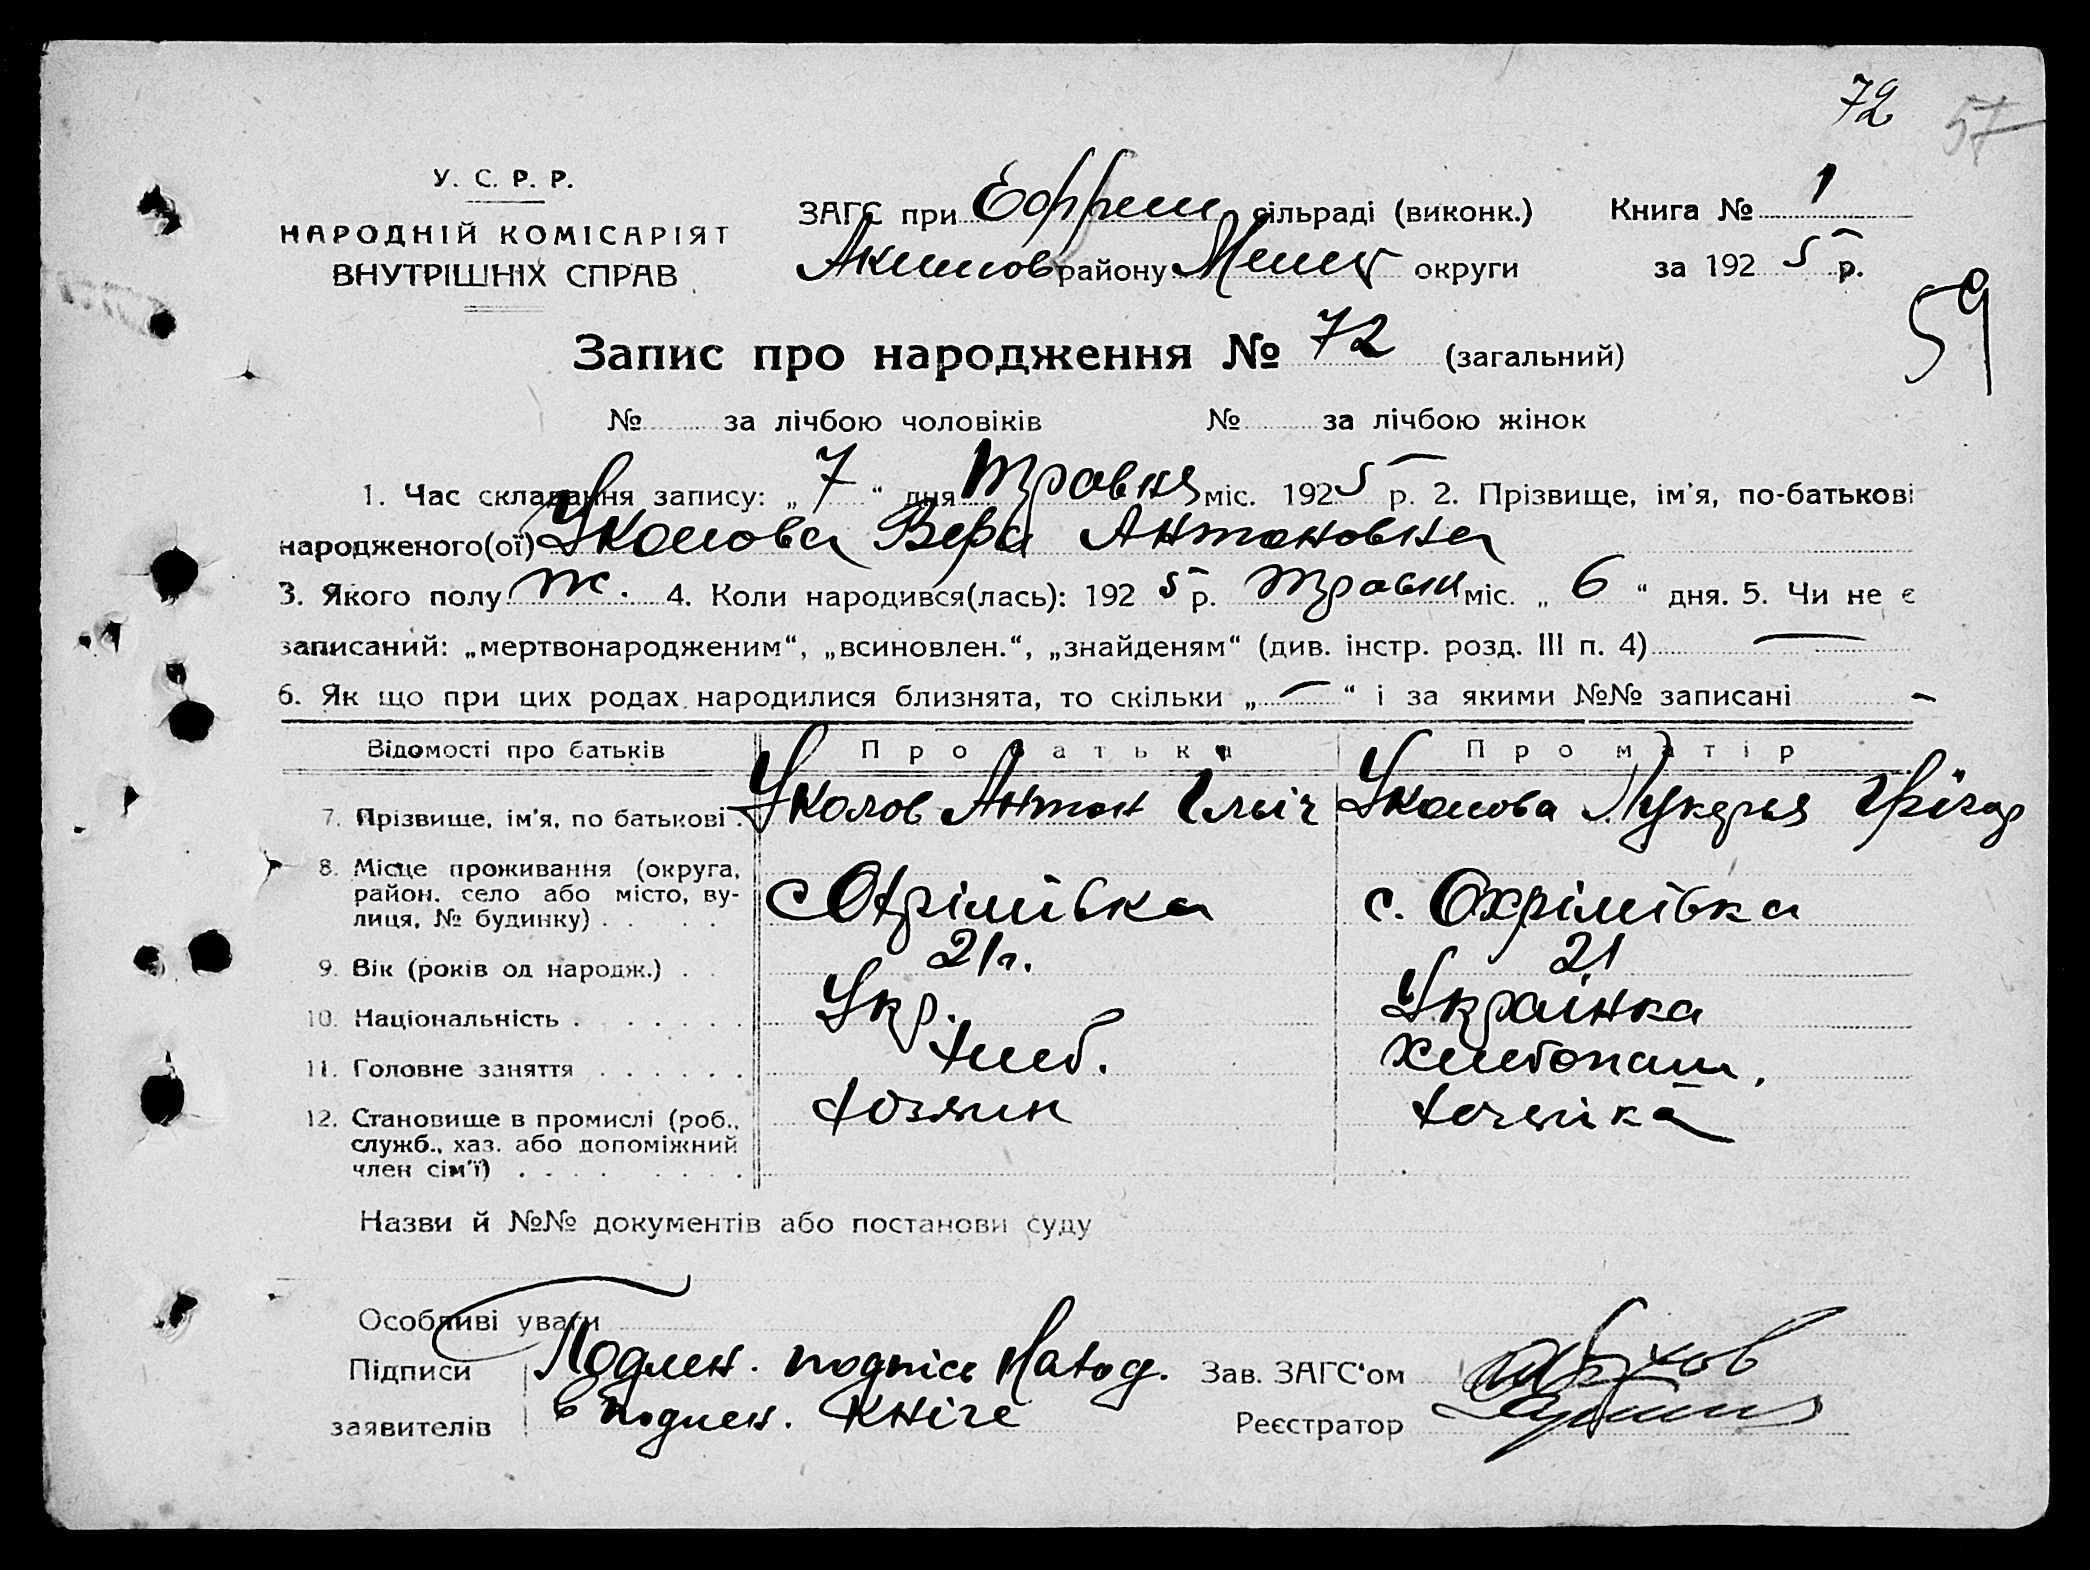 72 57
У. С. Р. Р.
НАРОДНІЙ КОМІСАРІЯТ
ВНУТРІШНІХ СПРАВ
ЗАГС при Ефрем сільраді (виконк.) Книга № 1
Акимов району Меліт округи за 192 5 р.
59
Запис про народження № 72 (загальний)
№ за лічбою чоловіків № за лічбою жінок
1. Час складання запису: „ 7 “ дня Травня міс. 192 5 р. 2. Прізвище, ім'я, по-батькові
народженого(ої) Уколова Вера Антоновна
3. Якого полу ж. 4. Коли народився(лась): 192 5 р. Травн міс. „ 6 “ дня. 5. Чи не є
записаний: „мертвонародженим“, „всиновлен.“, „знайденям“ (див. інстр. розд. III п. 4) —
6. Як що при цих родах народилися близнята, то скільки „ — “ і за якими №№ записані –
Відомості про батьків Про батька Про матір
7. Прізвище, ім'я, по батькові . Уколов Антон Ільіч Уколова Лукерья Грігор
8. Місце проживання (округа,
район, село або місто, ву-
лиця, № будинку) . . . . с Охрімівка с. Охрімівка
9. Вік (років од народж.) . . 21 г. 21
10. Національність . . . . . . Укр. Українка
11. Головне заняття . . . . . . хлеб. Хлебопаш.
12. Становище в промислі (роб.,
служб., хаз. або допоміжний
член сім'ї) . . . . . . . . хозяин хозяйка
Назви й №№ документів або постанови суду
Особливі уваги
Підписи Подлен. подпісь Наход. Зав. ЗАГС'ом
заявителів в подлен. Кніге Реєстратор